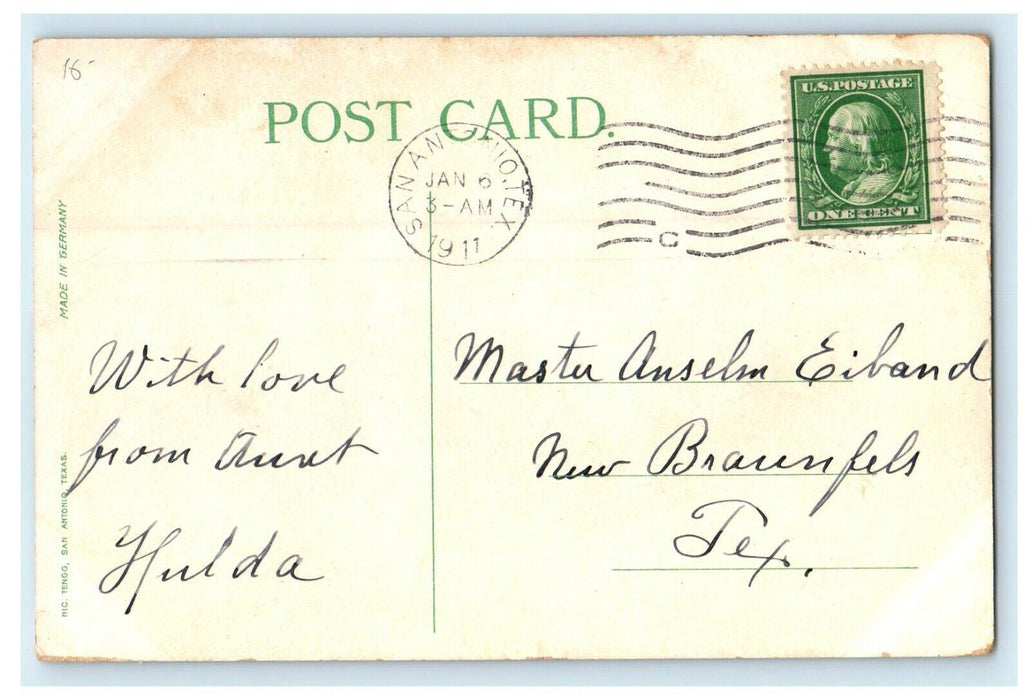 18-
POST CARD.
U.S. POSTAGE
ONE CENT
SAN ANTONIO, TEX.
JAN 6
3-AM
1911
C
MADE IN GERMANY
NIC. TENGG, SAN ANTONIO, TEXAS.
With love
from Aunt
Hulda
Master Anselm Eiband
New Braunfels
Tex.